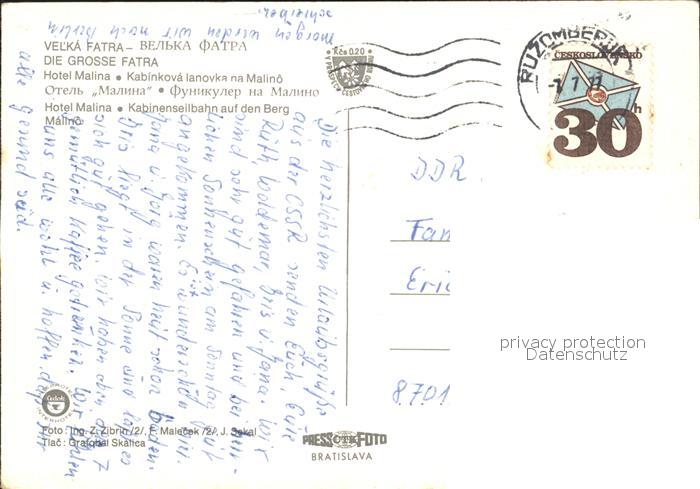 VEĽKÁ FATRA – ВЕЛЬКА ФАТРА
DIE GROSSE FATRA
Hotel Malina • Kabínková lanovka na Malinô
Отель „Малина" • Фуникулер на Малино
Hotel Malina • Kabinenseilbahn auf den Berg
Málinô
Kčs 0,20
RUŽOMBEROK
-7. 7. 77
ČESKOSLOVENSKO
30h
Die herzlichsten Urlaubsgrüße
aus der CSSR senden Euch, Eure
Ruth, Woldemar, Iris u. Jana. Wir
sind sehr gut gefahren und bei herr-
lichen Sonnenschein am Sonntag
angekommen. Es ist wunderschön hier.
Jana u. Jörg waren heut schon baden.
Iris liegt in der Sonne und läßt es
sich gut gehen. Wir haben eben
gemütlich Kaffee getrunken. Wir fühlen
uns alle wohl u. hoffen, daß Ihr
alle gesund seid.
morgen werden wir nach
schreiben.
DDR
Fam
Eric
8701
privacy protection
Datenschutz
Čedok
INTERHOTEL
Foto: Ing. Z. Zibrin /2/, F. Maleček /2/, J. Sekal
Tlač: Grafobal Skalica
PRESSFOTO
BRATISLAVA